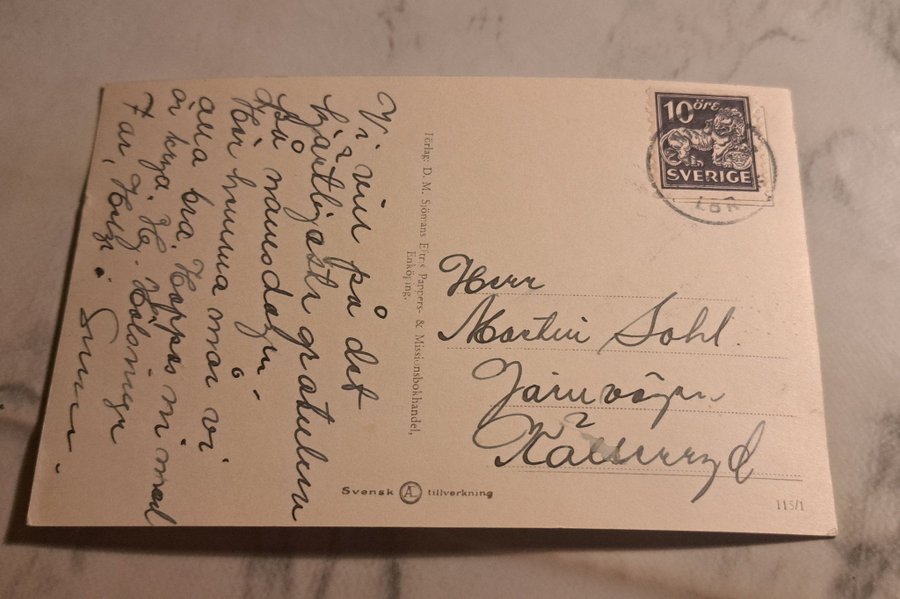 Vi vill på det
hjärtligaste gratulera
på namnsdagen.
Här hemma mår vi
alla bra, Hoppas ni med
är krya. Hj. Hälsningar
Far,
Förlag: D. M. Sjömans Eftr:s Pappers- & Missionsbokhandel,
Enköping.
10 ÖRE
SVERIGE
LBR
Herr
Martin Sohl.
Järnvägen
Svensk AL tillverkning
113/1